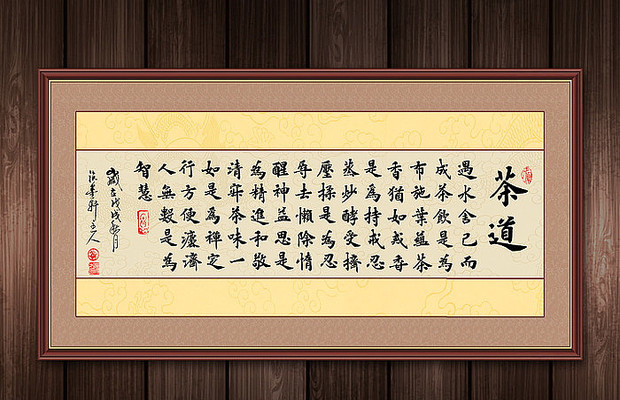 茶道
遇水舍己而
成茶飲是為
布施葉蘊茶
香猶如戒香
是為持戒忍
蒸炒酵受擠
壓揉是為忍
辱去懶除惰
醒神益思是
為精進和敬
清寂茶味一
如是為禪定
行方便濟
人無數是為
智慧
歲在戊戌月
墨軒主人